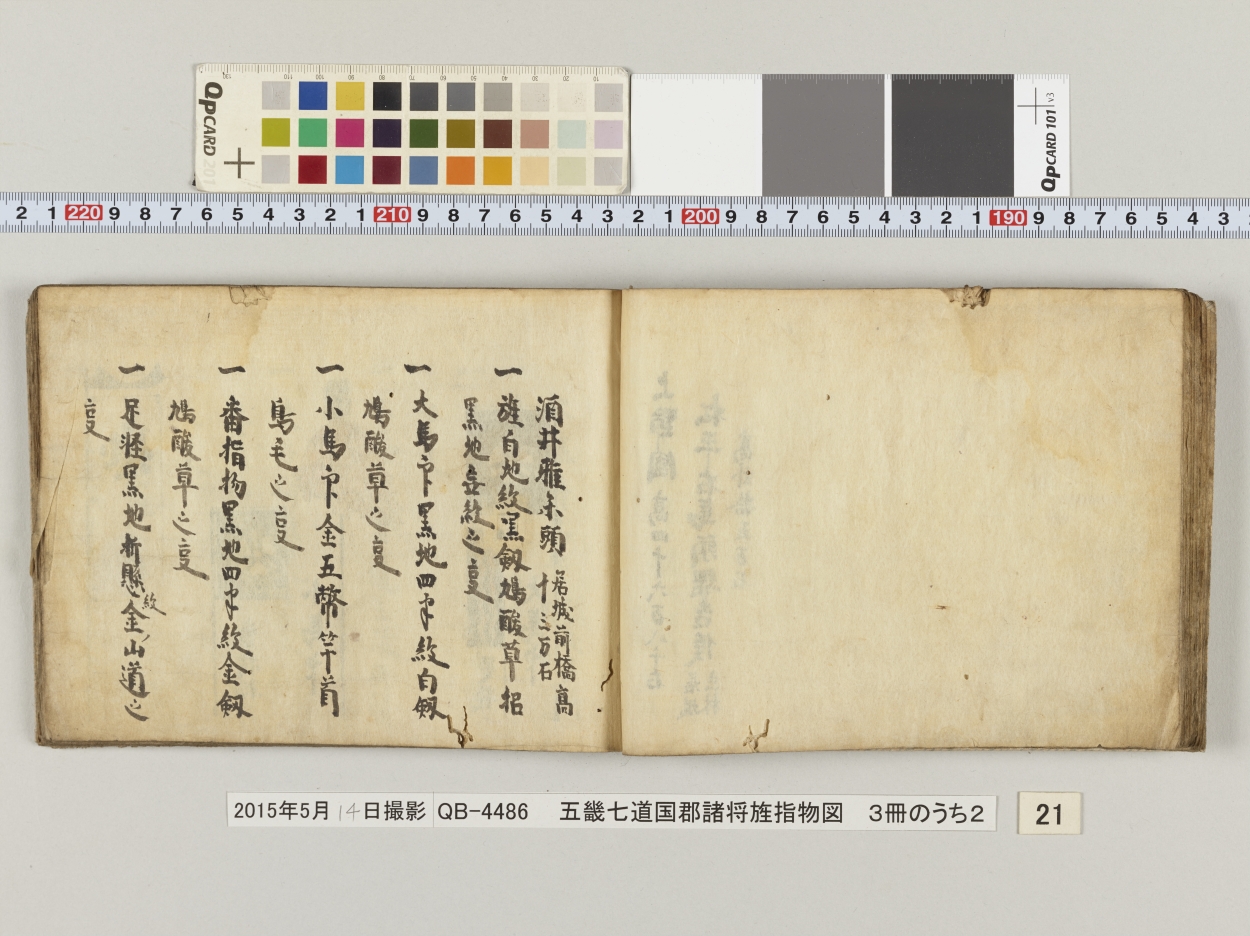 QPCARD 201
QPCARD 101 v3
2 1 220 9 8 7 6 5 4 3 2 1 210 9 8 7 6 5 4 3 2 1 200 9 8 7 6 5 4 3 2 1 190 9 8 7 6 5 4 3
酒井雅楽頭 居城前橋高
十三万石
一 旌白地紋黒劔鳩酸草招
黒地無紋之㕝
一 大馬印黒地四半紋白劔
鳩酸草之㕝
一 小馬印金五幣竿首
鳥毛之㕝
一 番指物黒地四半紋金劔
鳩酸草之㕝
一 足軽黒地折懸紋金山道之
㕝
2015年5月14日撮影 QB-4486 五畿七道国郡諸将旌指物図 3冊のうち2
21